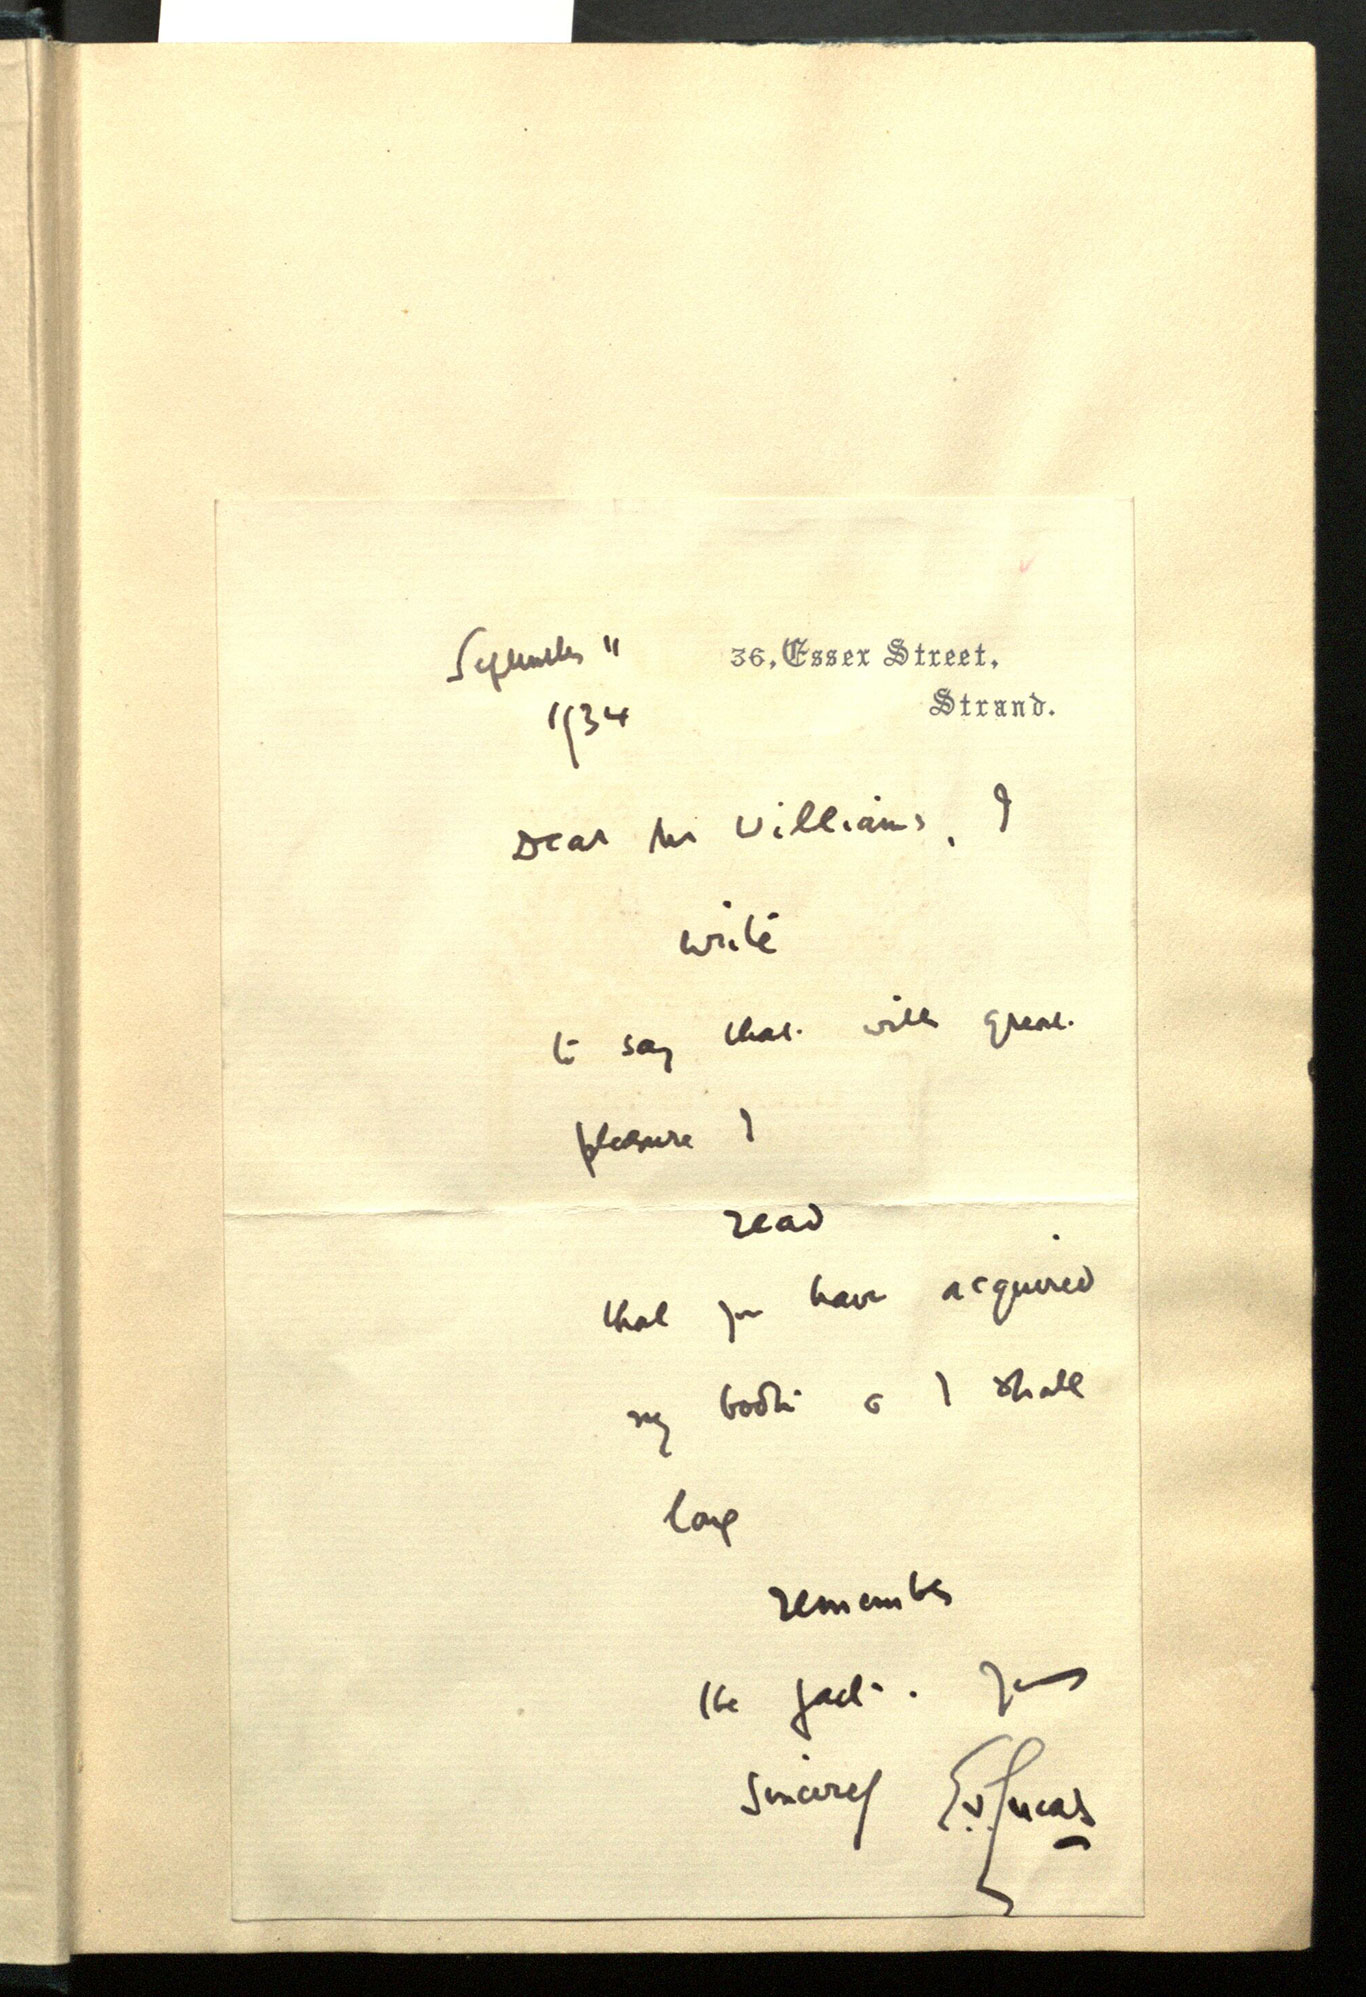 September 11
1934
36, Essex Street,
Strand.
Dear Mr Williams, I
write
to say that with great
pleasure I
read
that you have acquired
my book & I shall
long
remember
the fact. Yours
Sincerely E.V. Lucas